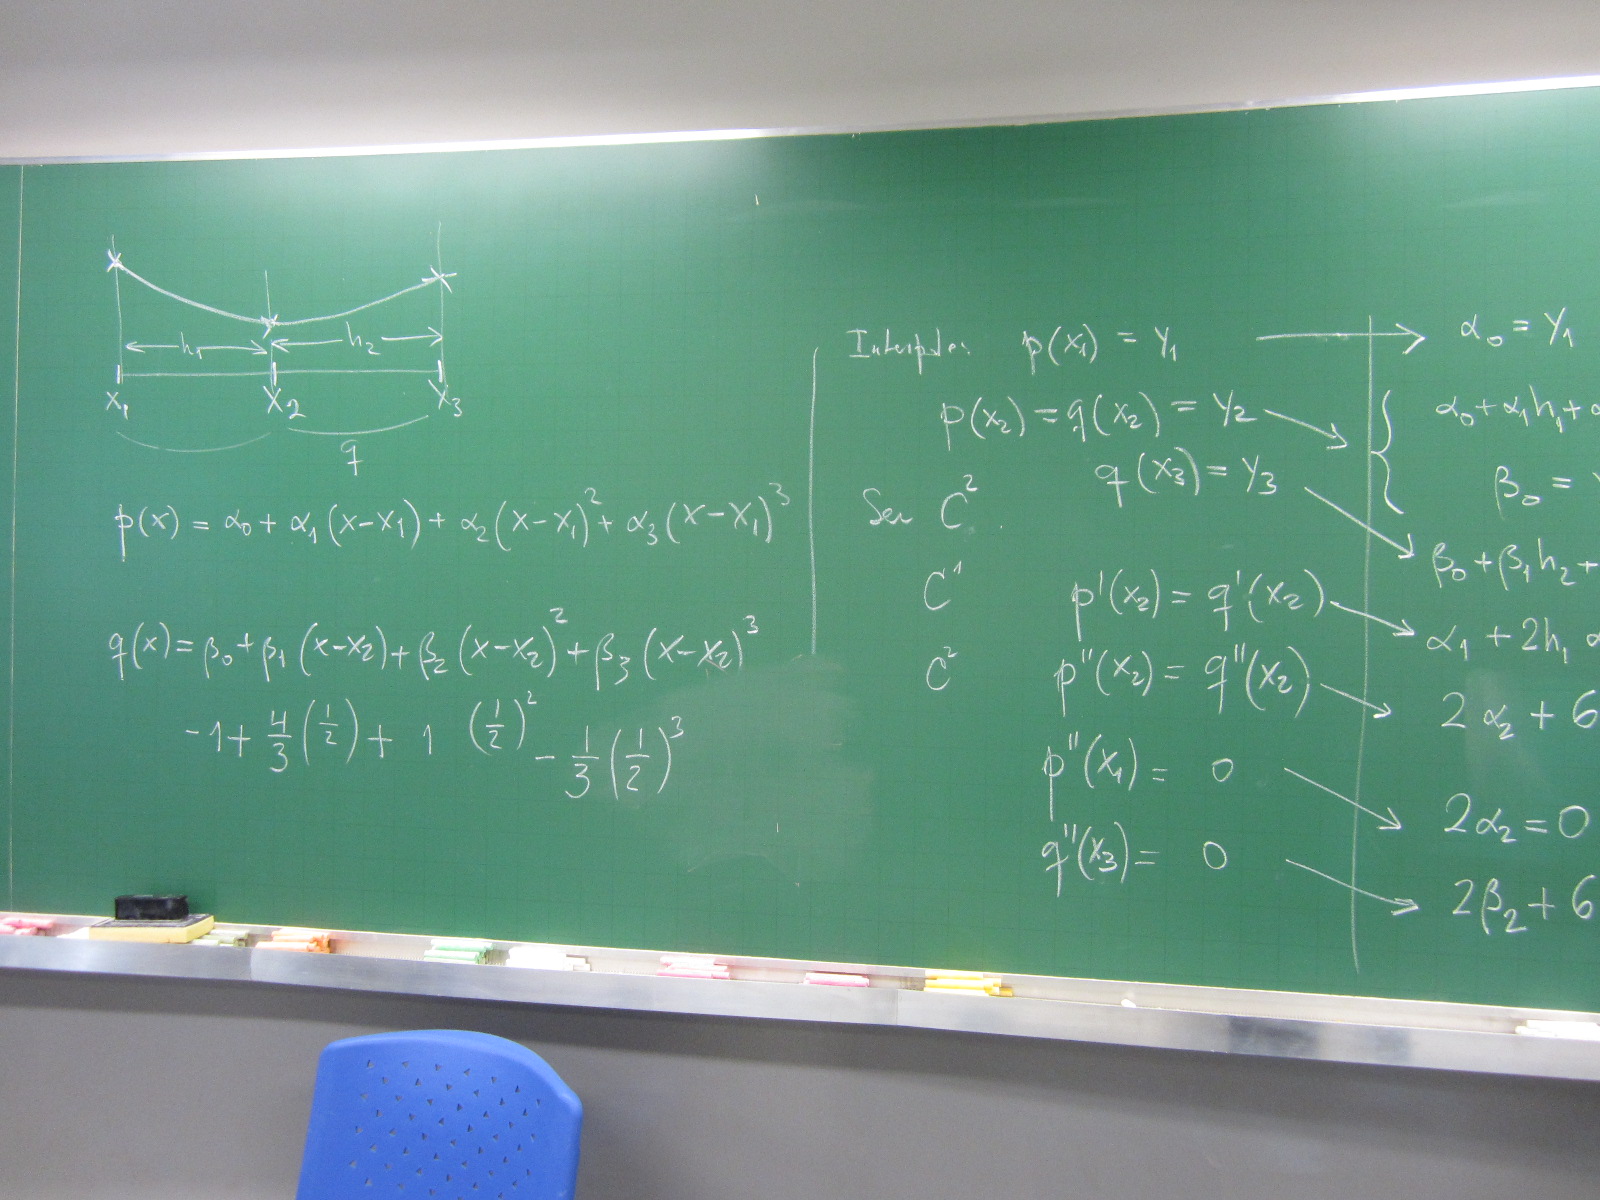 h₁ h₂
x₁ x₂ x₃
q
p(x) = α₀ + α₁(x-x₁) + α₂(x-x₁)² + α₃(x-x₁)³
q(x) = β₀ + β₁(x-x₂) + β₂(x-x₂)² + β₃(x-x₂)³
-1 + 4/3 (1/2) + 1 (1/2)² - 1/3 (1/2)³
p(x₁) = y₁
p(x₂) = q(x₂) = y₂
q(x₃) = y₃
Ser C².
C¹ p'(x₂) = q'(x₂)
C² p''(x₂) = q''(x₂)
p''(x₁) = 0
q''(x₃) = 0
α₀ = y₁
α₀ + α₁h₁ +
β₀ =
β₀ + β₁h₂ +
α₁ + 2h₁
2α₂ + 6
2α₂ = 0
2β₂ + 6